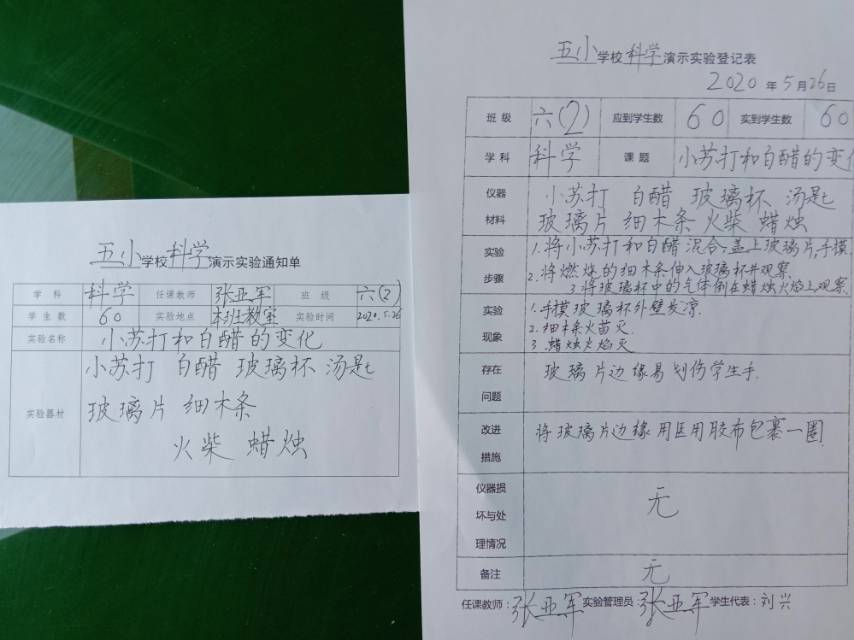 五小学校科学演示实验通知单
学科 科学 任课教师 张亚军 班级 六(2)
学生数 60 实验地点 本班教室 实验时间 2020.5.26
实验名称 小苏打和白醋的变化
实验器材 小苏打 白醋 玻璃杯 汤匙
玻璃片 细木条
火柴 蜡烛
五小学校科学演示实验登记表
2020年5月26日
班级 六(2) 应到学生数 60 实到学生数 60
学科 科学 课题 小苏打和白醋的变化
仪器材料 小苏打 白醋 玻璃杯 汤匙
玻璃片 细木条 火柴 蜡烛
实验步骤 1.将小苏打和白醋混合,盖上玻璃片,手摸.
2.将燃烧的细木条伸入玻璃杯并观察.
3.将玻璃杯中的气体倒在蜡烛火焰上观察.
实验现象 1.手摸玻璃杯外壁发凉.
2.细木条火苗灭
3.蜡烛火焰灭
存在问题 玻璃片边缘易划伤学生手.
改进措施 将玻璃片边缘用医用胶布包裹一圈.
仪器损坏与处理情况 无
备注 无
任课教师:张亚军 实验管理员 张亚军 学生代表:刘兴